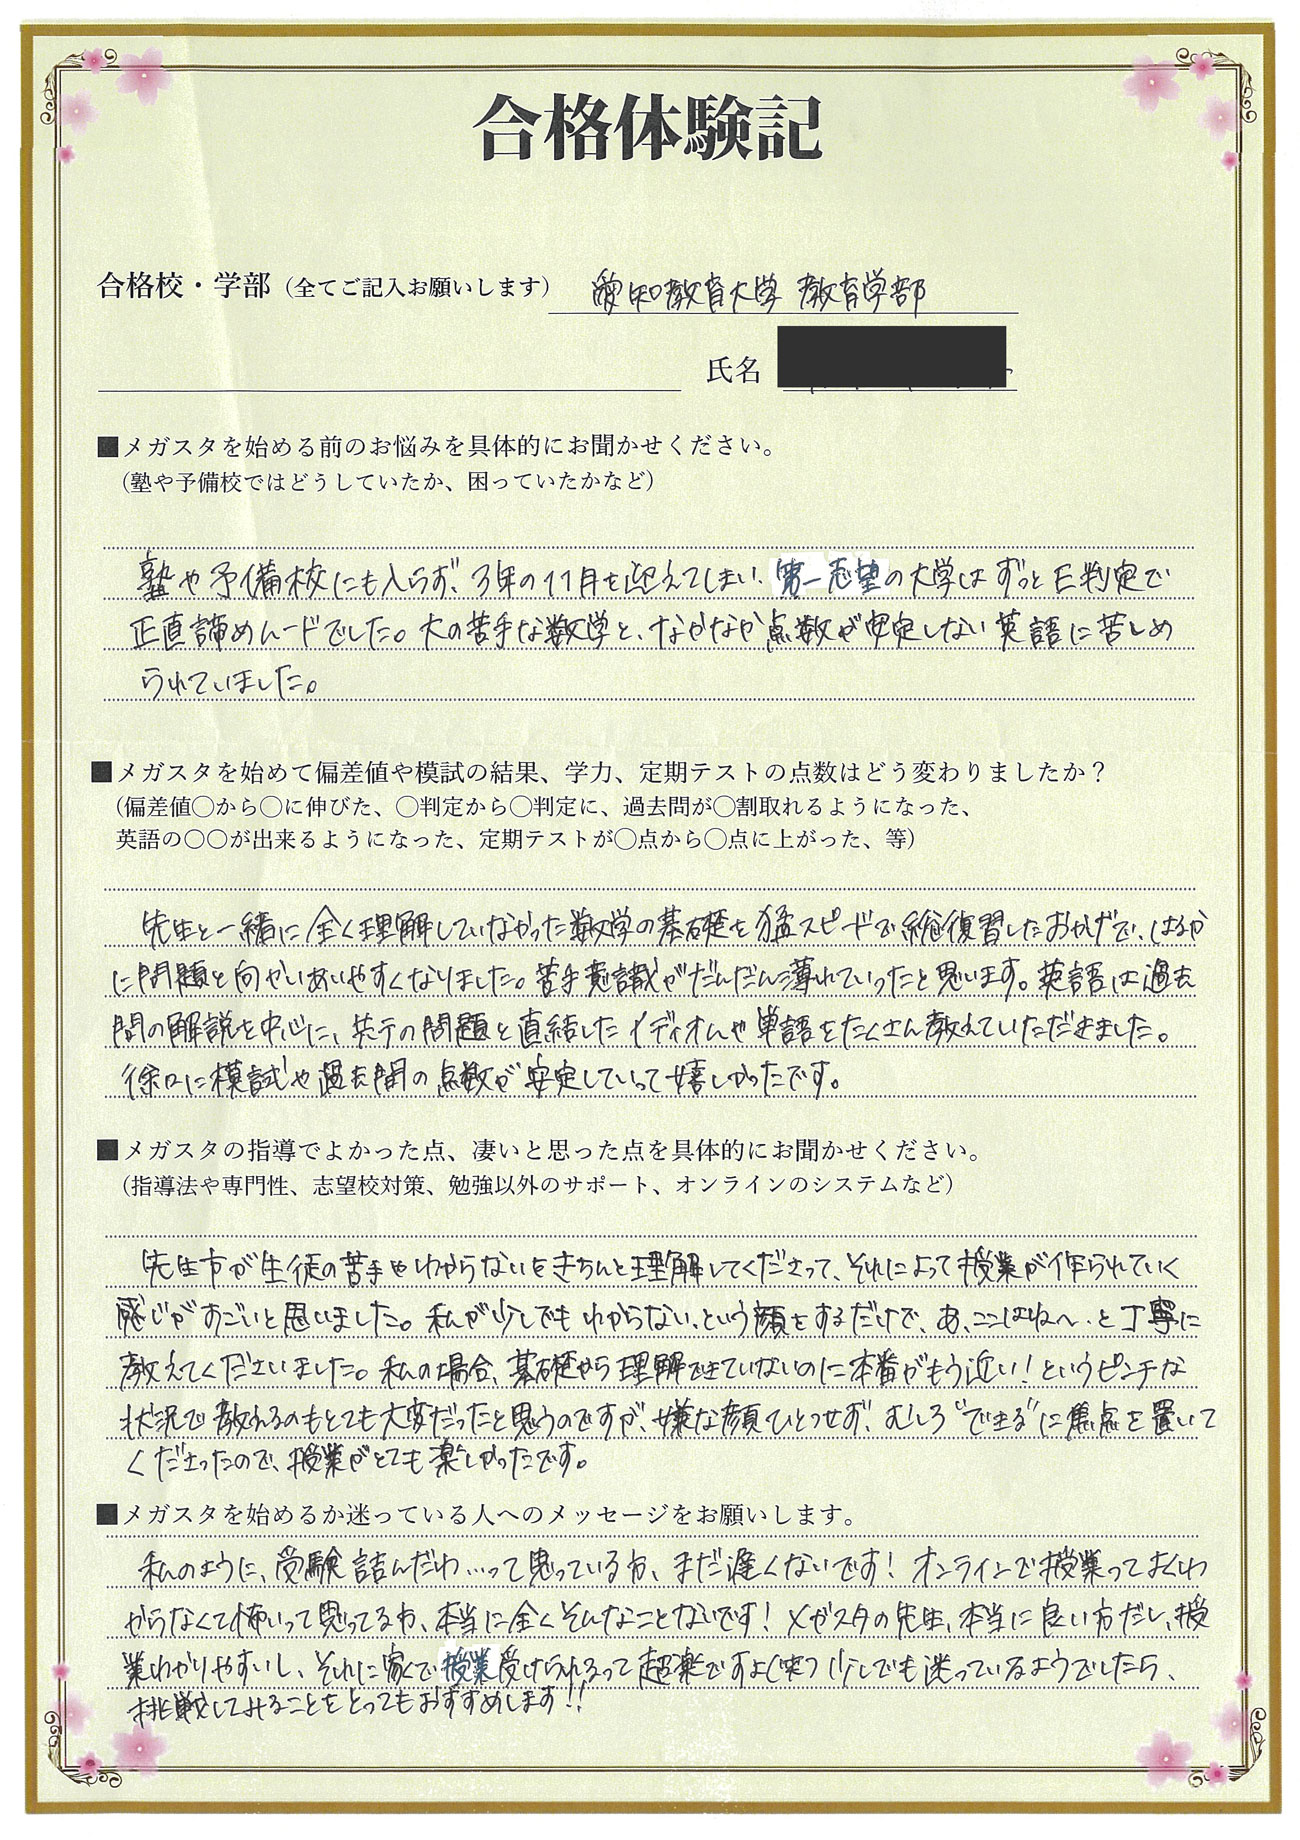 合格体験記
合格校・学部（全てご記入お願いします） 愛知教育大学 教育学部
氏名
■メガスタを始める前のお悩みを具体的にお聞かせください。
（塾や予備校ではどうしていたか、困っていたかなど）
塾や予備校にも入らず、3年の11月を迎えてしまい、第一志望の大学はずっとE判定で
正直諦めムードでした。大の苦手な数学と、なかなか点数が安定しない英語に苦しめ
られていました。
■メガスタを始めて偏差値や模試の結果、学力、定期テストの点数はどう変わりましたか？
（偏差値〇から〇に伸びた、〇判定から〇判定に、過去問が〇割取れるようになった、
英語の〇〇が出来るようになった、定期テストが〇点から〇点に上がった、等）
先生と一緒に全く理解していなかった数学の基礎を猛スピードで総復習したおかげで、はるか
に問題と向かいあいやすくなりました。苦手意識がだんだん薄れていったと思います。英語は過去
問の解説を中心に、共テの問題と直結したイディオムや単語をたくさん教えていただきました。
徐々に模試や過去問の点数が安定していって嬉しかったです。
■メガスタの指導でよかった点、凄いと思った点を具体的にお聞かせください。
（指導法や専門性、志望校対策、勉強以外のサポート、オンラインのシステムなど）
先生方が生徒の苦手やわからないをきちんと理解してくださって、それによって授業が作られていく
感じがすごいと思いました。私が少しでもわからない、という顔をするだけで、あ、ここはね〜、と丁寧に
教えてくださいました。私の場合、基礎から理解できていないのに本番がもう近い！というピンチな
状況で教えるのもとても大変だったと思うのですが、嫌な顔ひとつせず、むしろ“できる”に焦点を置いて
くださったので、授業がとても楽しかったです。
■メガスタを始めるか迷っている人へのメッセージをお願いします。
私のように、受験詰んだわ…って思っている方、まだ遅くないです！オンラインで授業ってよくわ
からなくて怖いって思ってる方、本当に全くそんなことないです！メガスタの先生、本当に良い方だし、授
業わかりやすいし、それに家で授業受けられるって超楽ですよ(笑)少しでも迷っているようでしたら、
挑戦してみることをとってもおすすめします！！